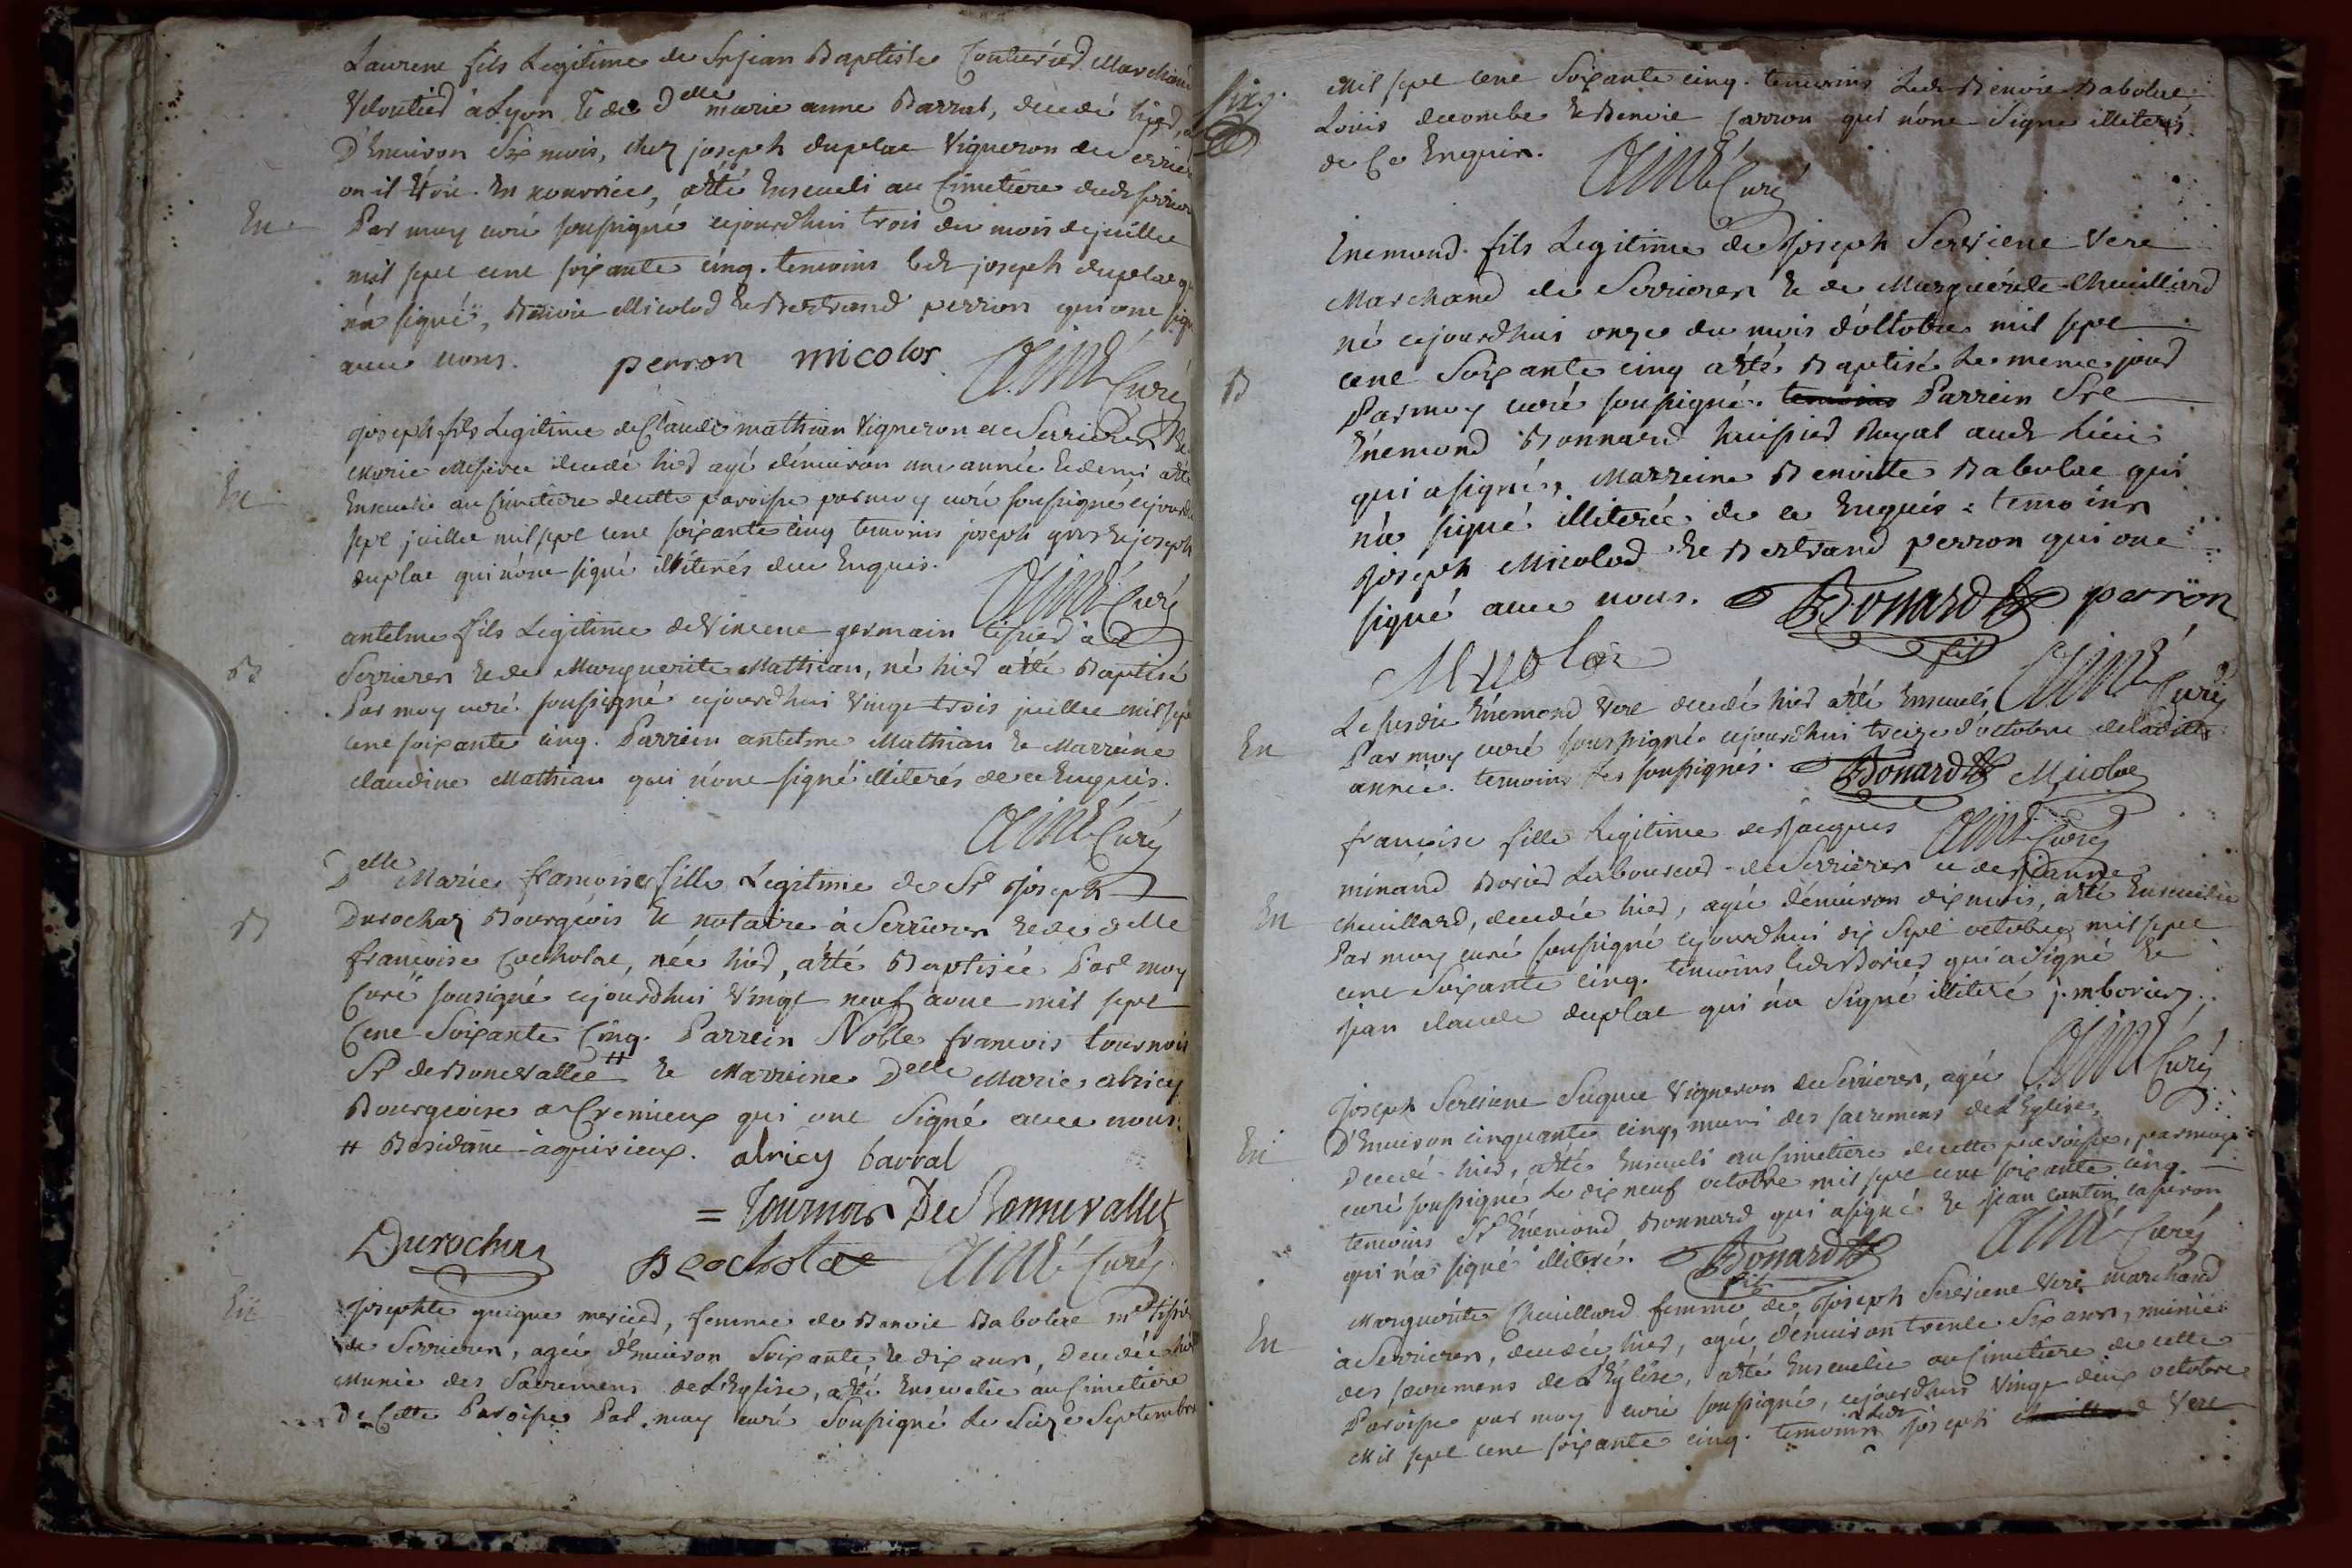 Laurent fils Legitime de Sr jean Baptiste Marchand
Veloutier à Lyon Et de Delle marie anne Barral, decedé hier,
D'Environ Six mois, chez joseph duplat Vigneron de
où il Etoit En nourrice, a été Enseveli au Cimetiere dudt
En
Par moy curé soussigné cejourdhui trois du mois de juillet
mil sept cent soixante cinq. temoins ledt joseph duplat
n'a signé, Benoit Micolod Et Bertrand perron qui ont
avec nous. perron micolor Aimé Curé
joseph fils Legitime de Claude mathian Vigneron de Serrieres Et
En
Marie decedé hier agé d'environ une année Et demi a été
Enseveli au Cimetiere de cette paroisse par moy curé soussigné
sept juillet mil sept cent soixante cinq temoins joseph gros Et joseph
duplat qui n'ont signé illiterés de ce Enquis.
Aimé Curé
antelme fils Legitime de Vincent germain tissier à
B
Serrieres Et de Marguerite Mathian, né hier a été Baptisé
Par moy curé soussigné cejourdhui Vingt trois juillet mil sept
cent soixante cinq. Parrein antelme Mathian Et Marreine
claudine Mathian qui n'ont signé illiterés de ce Enquis.
Aimé Curé
Delle Marie francoise fille Legitime de Sr joseph
B
Durochat Bourgeois Et notaire à Serrieres Et de delle
francoise Cocholat, née hier, a été Baptisée Par moy
Curé sousigné cejourdhui Vingt neuf aout mil sept
Cent Soixante Cinq. Parrein Noble francois tournois
Sr de Bonevallet # Et Marreine Delle Marie alricy
Bourgeoise à Cremieux qui ont Signé avec nous.
# alricy barral
= Tournois De Bonnevallet
Durochat B Cocholat Aimé Curé
En
josephte guigue mercier, femme de Benoit Babolat md
de Serrieres, agée d'Environ Soixante Et dix ans, Decedée hier
Munie des Sacremens de L'Eglise, a été Ensevelie au Cimetiere
De Cette Paroisse Par moy curé Soussigné Le Seize Septembre
Mil sept cent Soixante cinq. temoins Ledt Benoit Babolat
Louis decombe Et Benoit Carron qui n'ont Signé illiterés
de Ce Enquis.
Aimé Curé
Enemond fils Legitime de joseph Servient Vere
Marchand de Serrieres Et de Marguerite Chuillard
né cejourdhui onze du mois d'octobre mil sept
cent Soixante cinq a été Baptisé Le meme jour
B
Par moy curé soussigné. temoins Parrein Sre
Enemond Bonnard huissier Royal audt Lieu
qui a signé, Marreine Benoitte Babolat qui
n'a signé illiterée de ce Enquis. temoins
joseph Micolod Et Bertrand perron qui ont
signé avec nous. Bonard fils perrön
Micolor Aimé Curé
Le susdit Enemond Vere decedé hier a été Enseveli
En
Par moy curé soussigné cejourdhui treize d'octobre de ladite
année. temoins les soussignés. Bonard Micolod
francoise fille Legitime de jacques Aimé Curé
minand Borier Laboureur de Serrieres et de jeanne
En
chuillard, decedée hier, agée d'environ dix mois, a été Ensevelie
Par moy curé soussigné cejourdhui dix Sept octobre mil sept
cent Soixante cinq. temoins ledt Borier qui a Signé Et
jean claude duplat qui n'a Signé illiteré j. m borier
Aimé Curé
joseph Servient Vigneron de Serrieres, agé
En
D'Environ cinquante cinq, muni des sacremens de L'Eglise,
Decedé hier, a été Enseveli au Cimetiere de cette paroisse, par moy
curé soussigné Le dix neuf octobre mil sept cent soixante cinq.
temoins Sr Enemond Bonnard qui a signé Et jean
qui n'a signé illiteré. Bonard fils Aimé Curé
Marguerite Chuillard femme de joseph Servient Vere marchand
En
à Serrieres, decedée hier, agée d'environ trente Six ans, munie
des sacremens de L'Eglise, a été Ensevelie au Cimetiere de cette
Paroisse par moy curé soussigné, cejourdhui Vingt deux octobre
Mil sept cent soixante cinq. temoins ledt joseph Vere